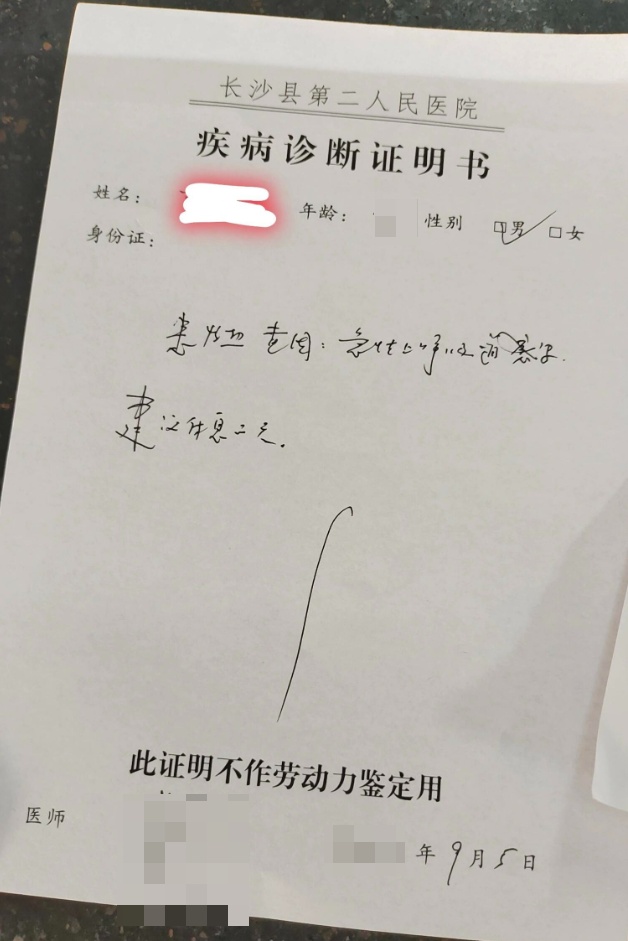 长沙县第二人民医院
疾病诊断证明书
姓名： 年龄： 性别 男 女
身份证：
患 发热 查因：急性上呼吸道感染.
建议休息二天.
此证明不作劳动力鉴定用
医师
年9月5日